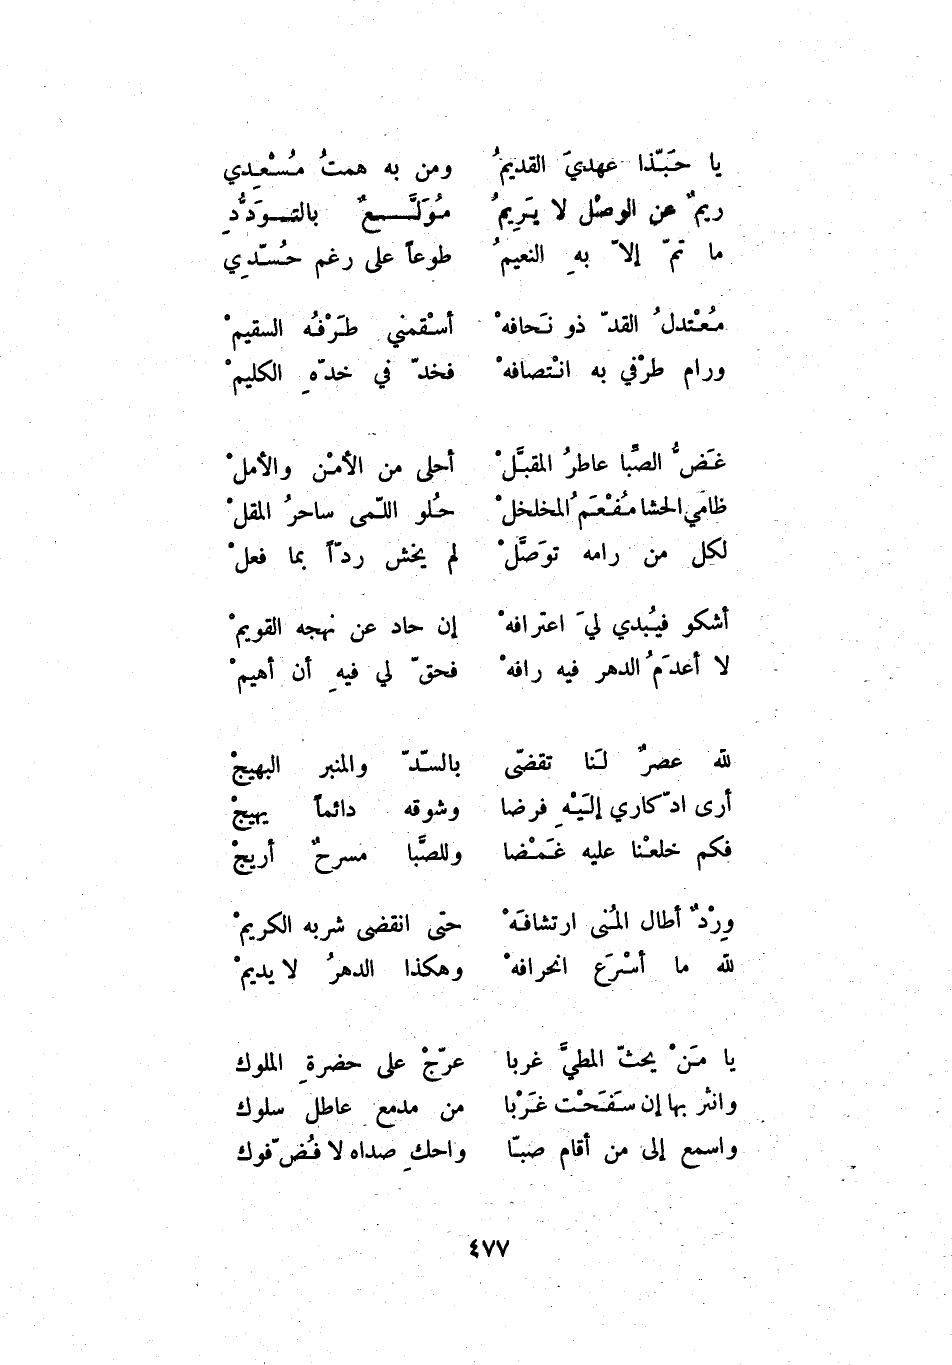 يا حَبّذا عهديَ القديمُ ومن به همتُ مُسْعِدي
ريمٌ عن الوصْل لا يَرِيمُ مُوَلَّعٌ بالتودُّدِ
ما تمّ إلاّ بهِ النعيمُ طوعاً على رغم حُسّدِي
مُعْتدلُ القدّ ذو نَحافهْ أسْقمني طَرْفُه السقيمْ
ورام طرْفي به انْتصافهْ فخدّ في خدّهِ الكليمْ
غَضُّ الصِّبا عاطرُ المقبَّلْ أحلى من الأمْن والأملْ
ظامي الحشا مُفْعَمُ المخلخلْ حُلو اللّمى ساحرُ المقلْ
لكل من رامه توَصَّلْ لم يخش ردّاً بما فعلْ
أشكو فيُبدي ليَ اعترافهْ إن حاد عن نهجه القويمْ
لا أعدَمُ الدهر فيه رافهْ فحقّ لي فيهِ أن أهيمْ
لله عصرٌ لَنا تقضّى بالسّدّ والمنبر البهيجْ
أرى ادّكاري إلَيْهِ فرضا وشوقه دائماً يهيجْ
فكم خلعْنا عليه غَمْضا وللصَّبا مسرحٌ أريجْ
وِرْدٌ أطال المُنى ارتشافَهْ حتّى انقضى شربه الكريمْ
لله ما أسْرَع انحرافهْ وهكذا الدهرُ لا يديمْ
يا مَنْ يحثّ المطيَّ غربا عرّجْ على حضرةِ الملوك
وانثر بها إن سَفَحْت غَرْبا من مدمع عاطل سلوك
واسمع إلى من أقام صبّا واحكِ صداه لا فُضّ فوك
٤٧٧